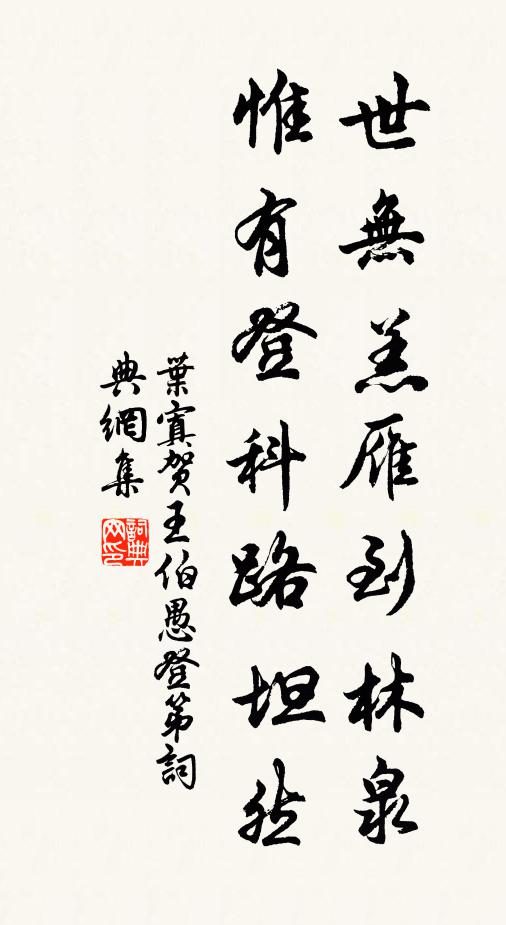 世無羔雁到林泉
惟有登科路坦然
葉寘賀王伯愚登第詞
典網集
詞典網印